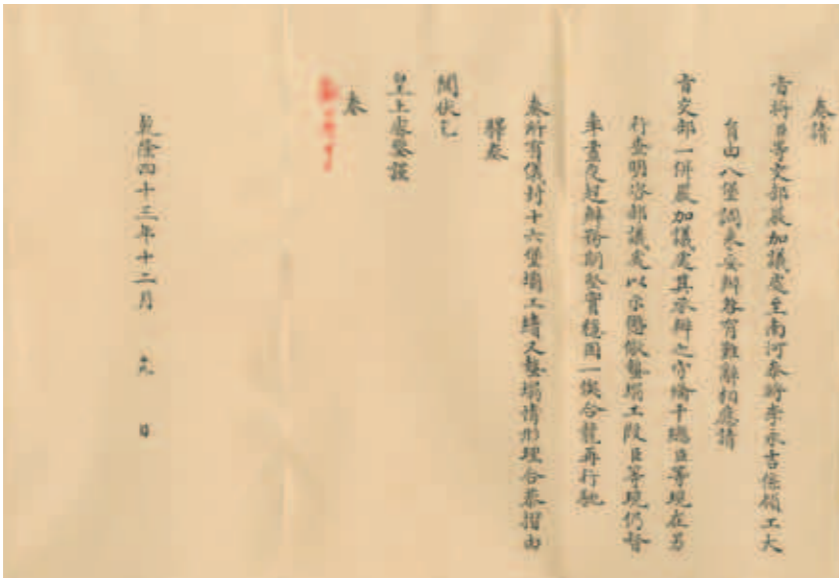 奏請
旨將臣等交部嚴加議處至南河叅將李永吉係領工大
員由八堡調來妥辦咎有難辭相應請
旨交部一併嚴加議處其承辦之守備千總臣等現在另
行查明咨部議處以示懲儆蟄塌工段臣等現仍督
率晝夜趕辦務期堅實穩固一俟合龍再行馳
奏所有儀封十六堡壩工續又蟄塌情形理合恭摺由
驛奏
聞伏乞
皇上睿鑒謹
奏
乾隆四十三年十二月 日